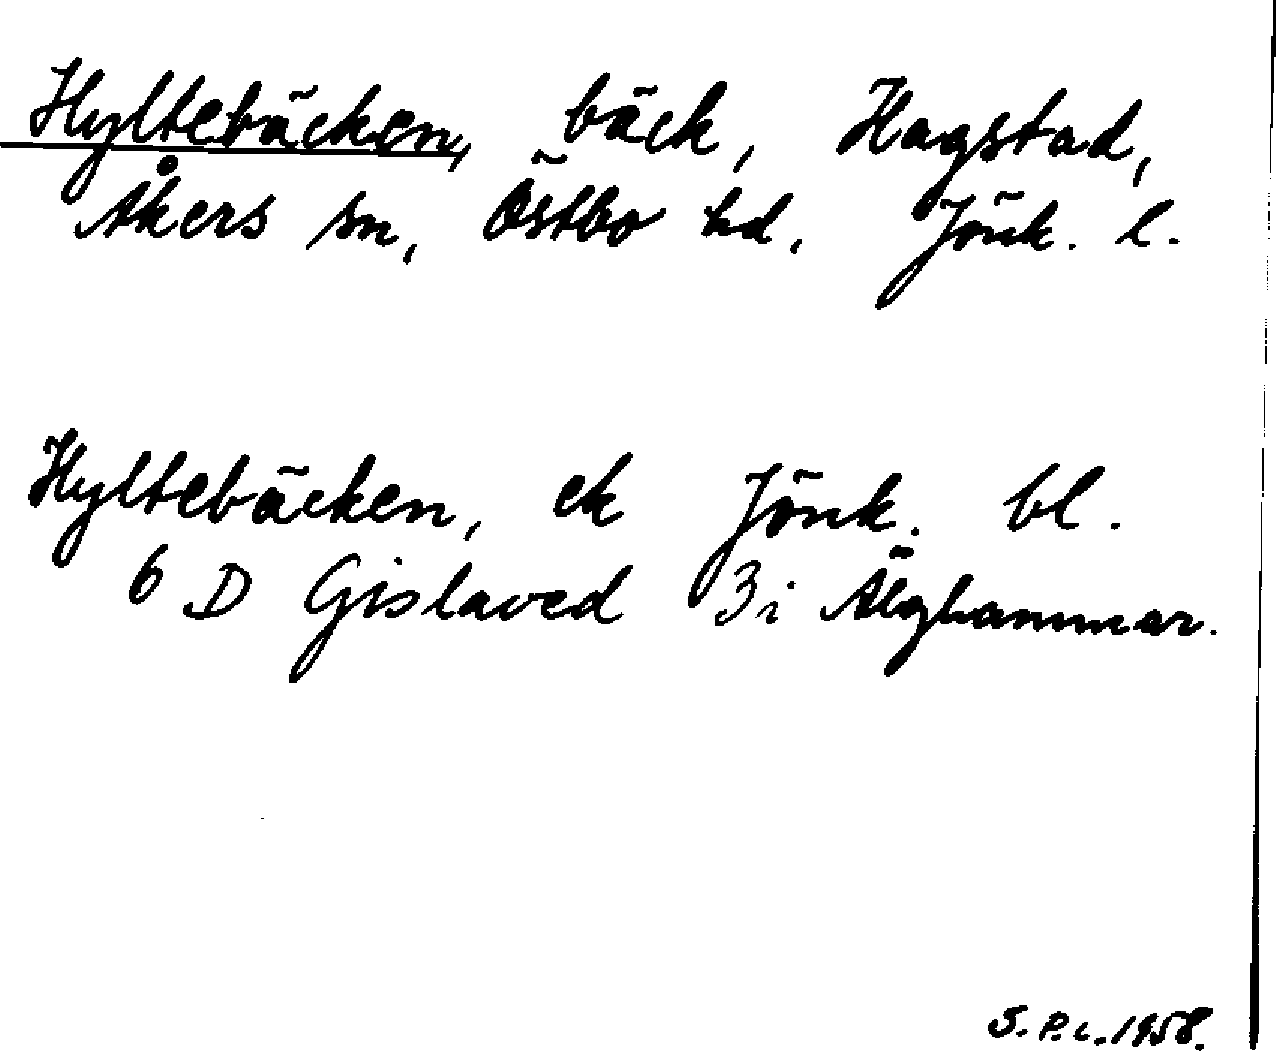 Hyltebäcken, bäck, Hagstad,
Åkers sn, Östbo hd, Jönk. l.
Hyltebäcken, ek Jönk. bl.
6 D Gislaved 3i Älghammar.
S.P.L. 1958.